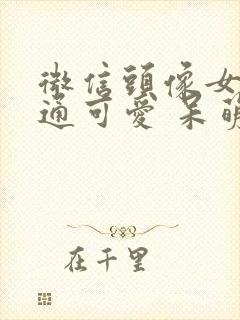 微信頭像女
通可愛 呆萌
在千里